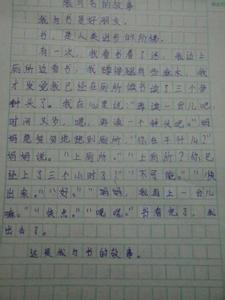 我与书的故事
我与书是好朋友。
书,是人类进步的阶梯。
有一次,我看书看了迷,我边上
厕所边看书,我蹲得腿有些麻木,我
才发觉我已经在厕所读了三个多
钟头了。我在心里说:“再读一会儿吧,
时间又多,嗯,再读一个钟头吧。”妈
妈急匆匆地想到厕所,“你在干什么?”
妈妈说。“上厕所。”“上厕所?你已
经上了三个小时了!”“不可能。”“快
出来。”“好。”“妈妈,我再上一会儿
嘛。”“快点。”“嗯嗯。”书看完了,我
出去了。
这是我与书的故事。